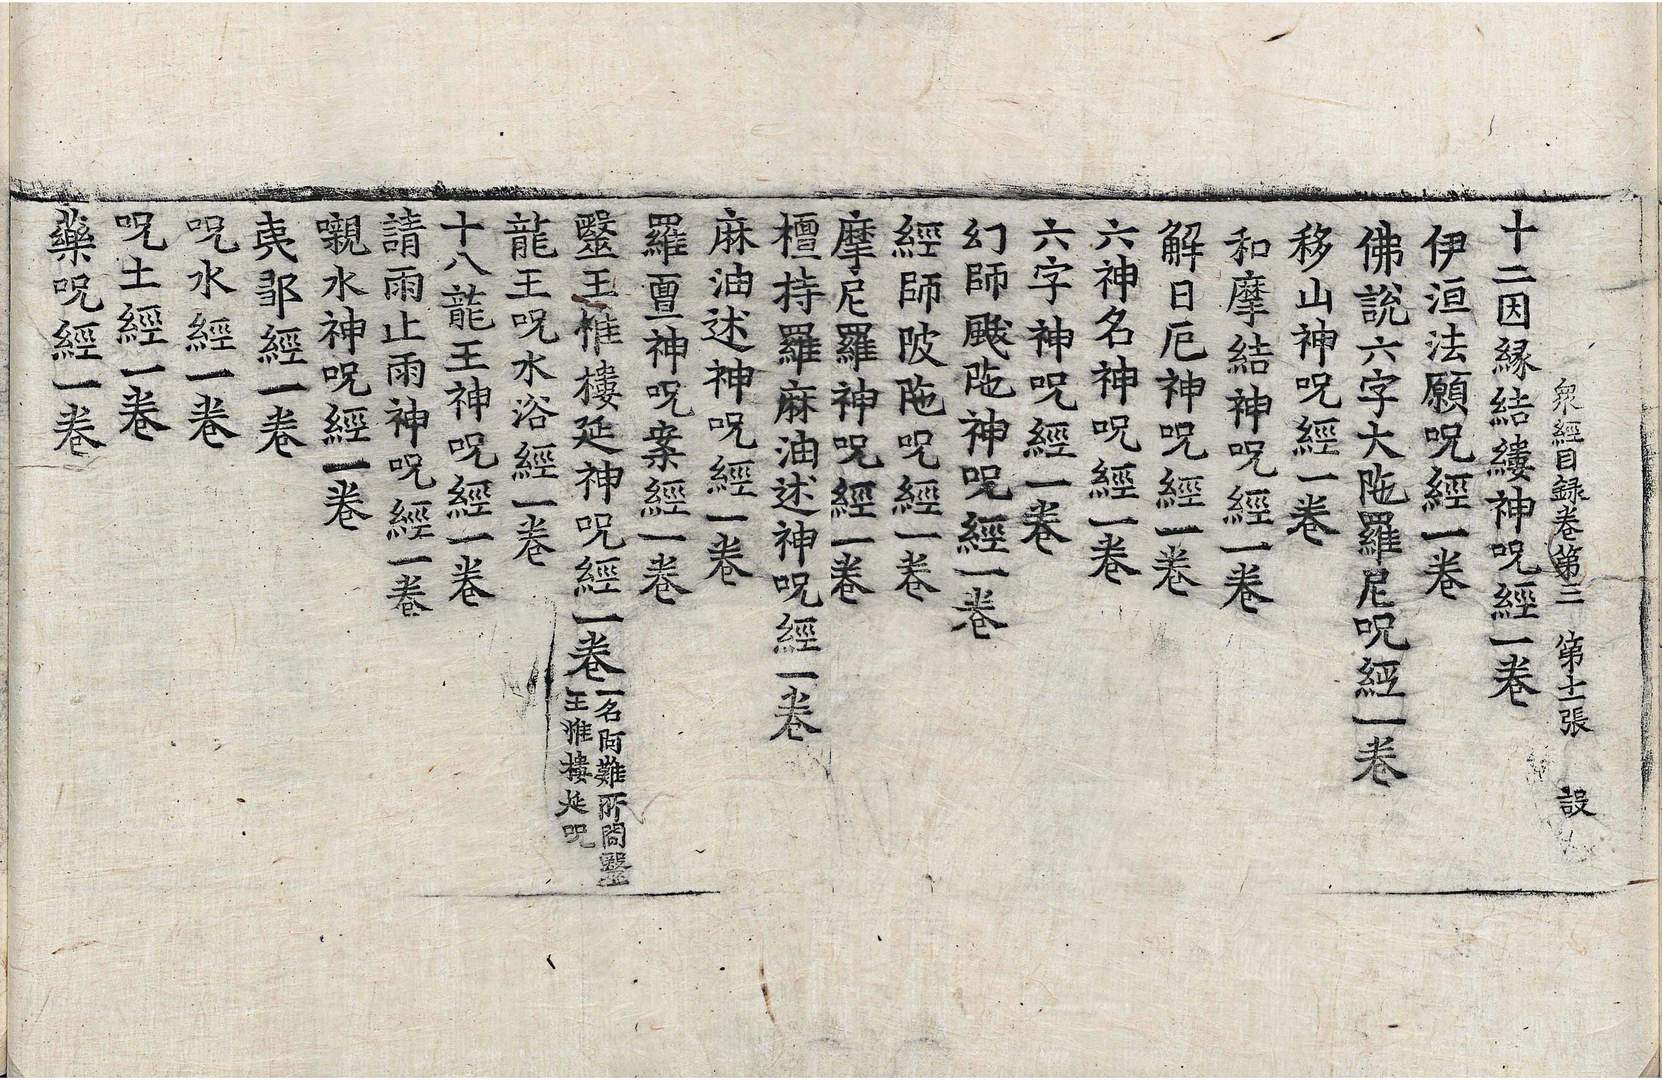 衆經目録卷第三　第十二張　設
十二因縁結縷神呪經一卷
伊洹法願呪經一卷
佛說六字大陁羅尼呪經一卷
移山神呪經一卷
和摩結神呪經一卷
解日厄神呪經一卷
六神名神呪經一卷
六字神呪經一卷
幻師颰陁神呪經一卷
經師陂陁呪經一卷
摩尼羅神呪經一卷
檀持羅麻油述神呪經一卷
麻油述神呪經一卷
羅亶神呪案經一卷
毉王惟樓延神呪經一卷 一名阿難所問毉王惟樓延呪
龍王呪水浴經一卷
十八龍王神呪經一卷
請雨止雨神呪經一卷
嚫水神呪經一卷
夷鄒經一卷
呪水經一卷
呪土經一卷
藥呪經一卷